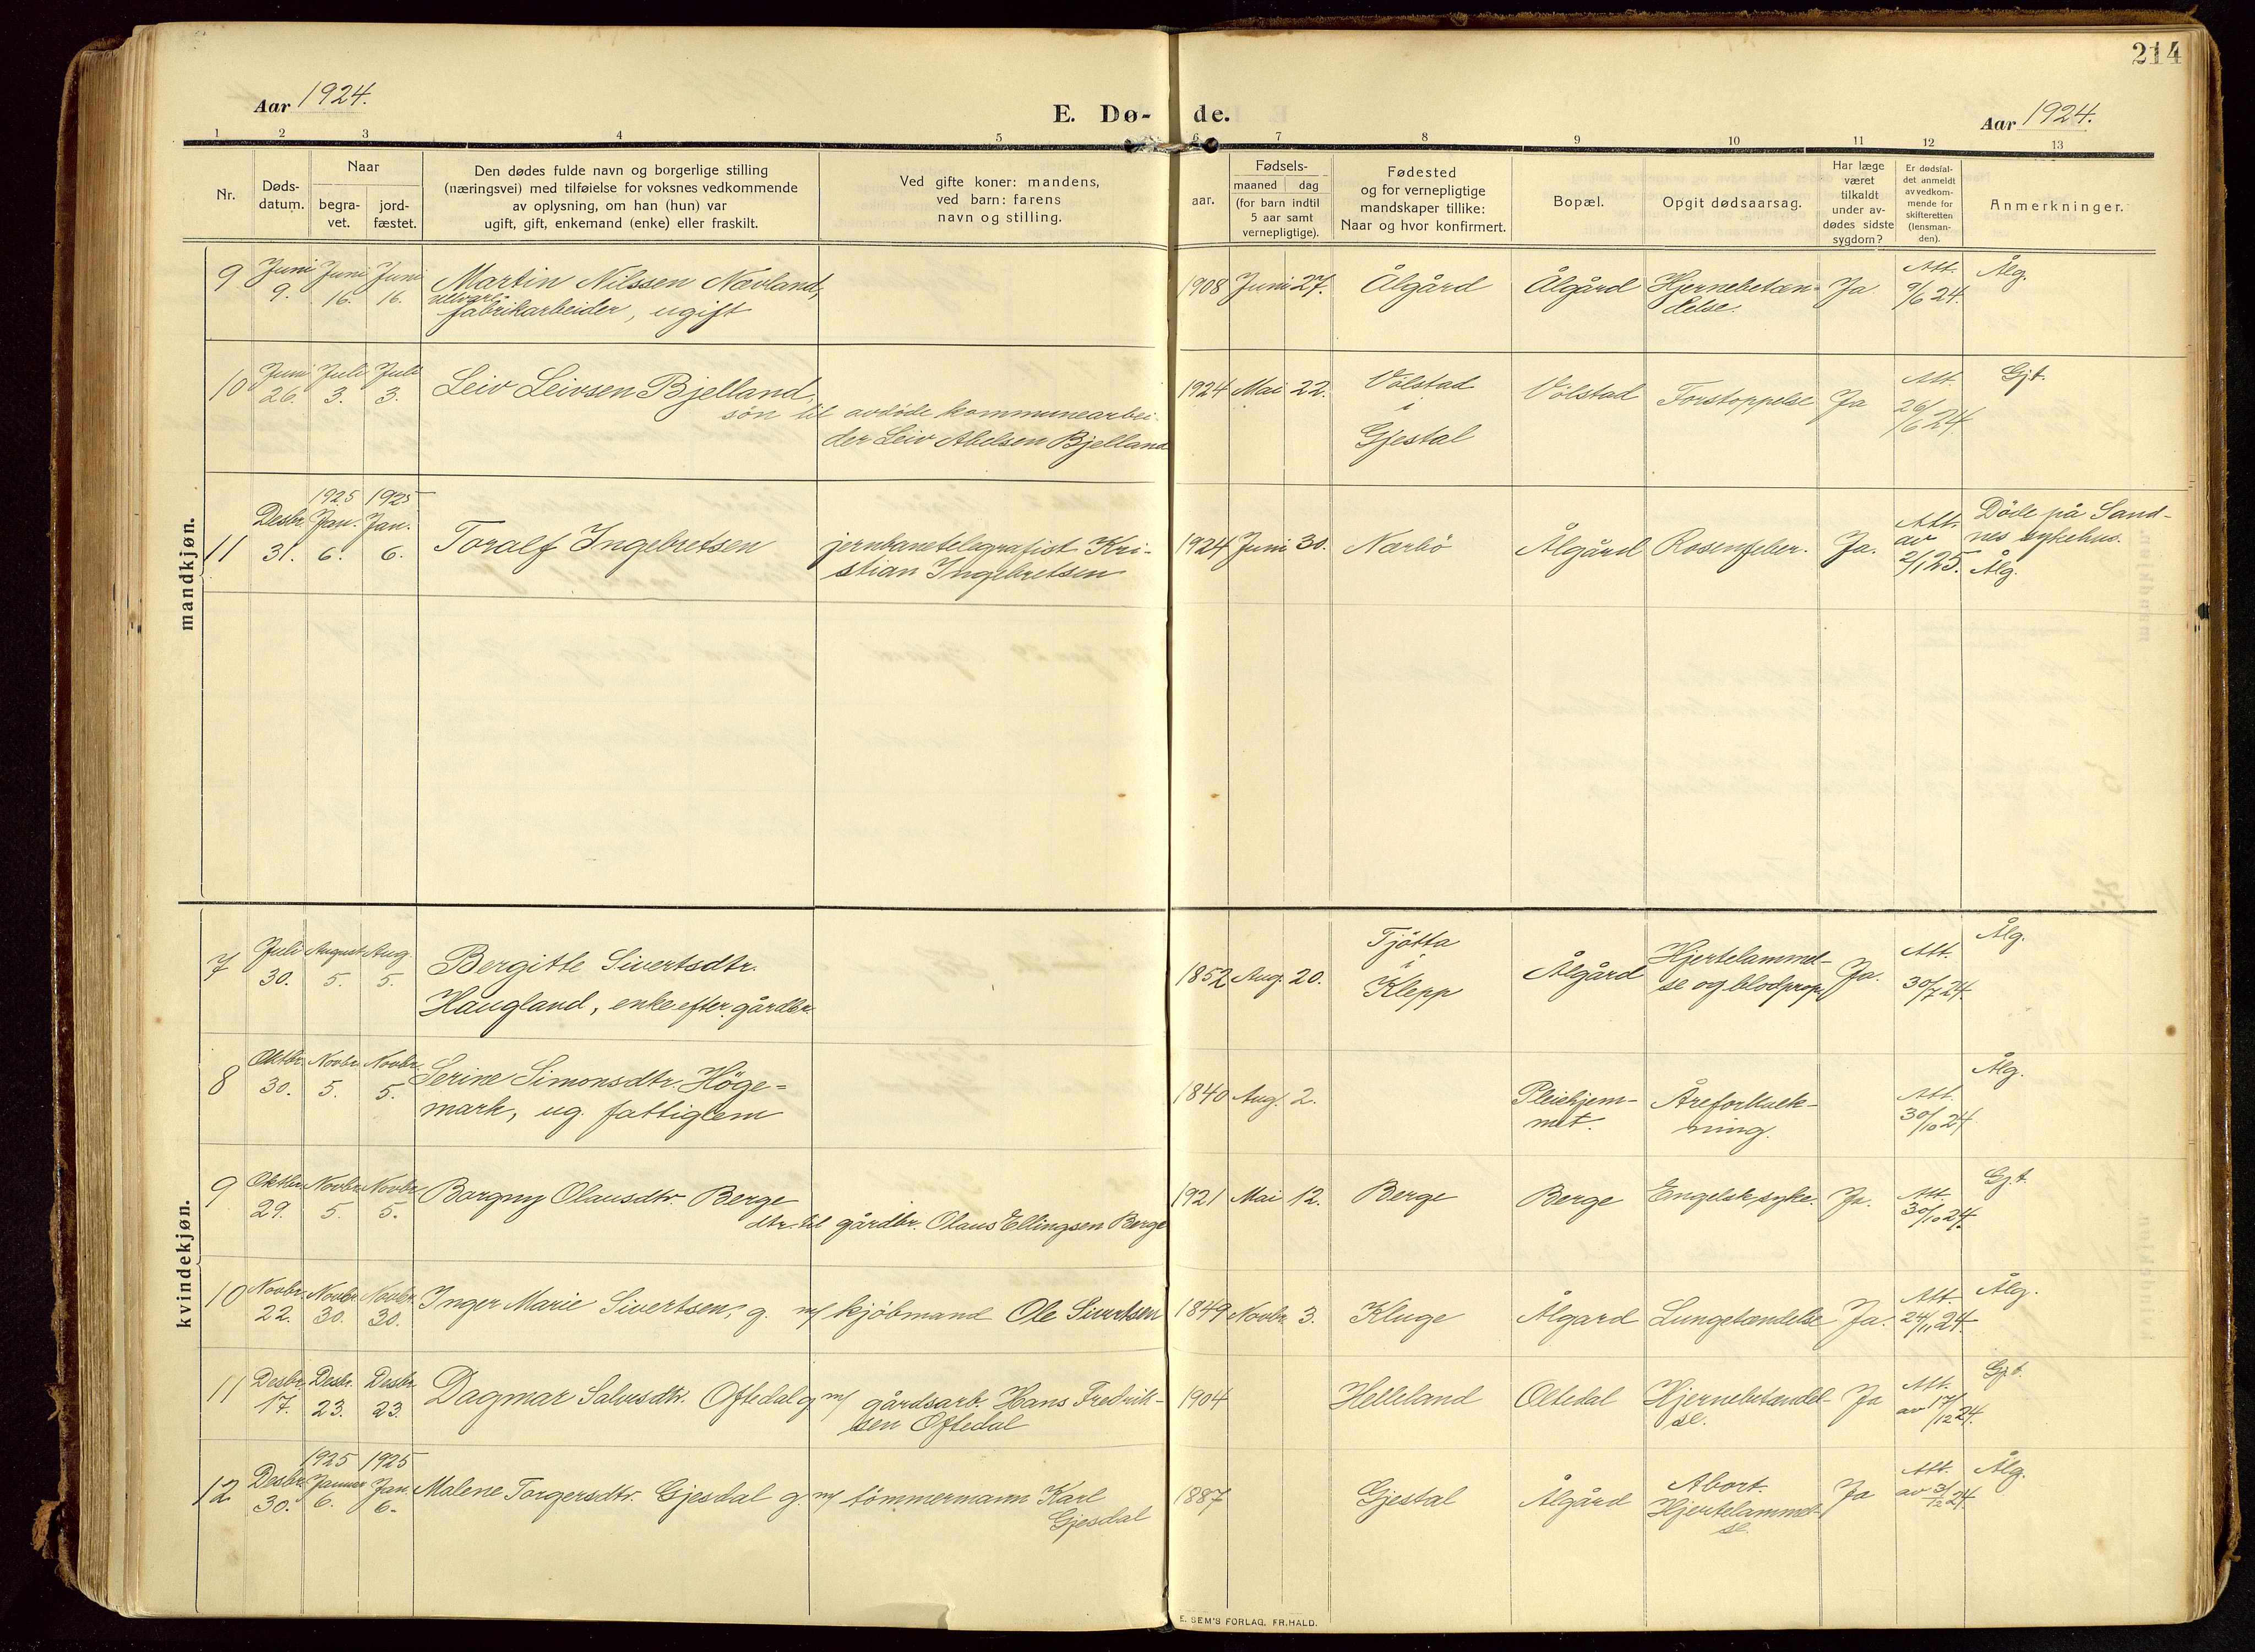 214
Aar 1924.
E. Dø- de.
Aar 1924.
1 2 3 4 5 6 7 8 9 10 11 12 13
Nr.
Døds-
datum.
Naar
begra-
vet.
jord-
fæstet.
Den dødes fulde navn og borgerlige stilling
(næringsvei) med tilføielse for voksnes vedkommende
av oplysning, om han (hun) var
ugift, gift, enkemand (enke) eller fraskilt.
Ved gifte koner: mandens,
ved barn: farens
navn og stilling.
Fødsels-
aar.
maaned dag
(for barn indtil
5 aar samt
vernepligtige).
Fødested
og for vernepligtige
mandskaper tillike:
Naar og hvor konfirmert.
Bopæl.
Opgit dødsaarsag.
Har læge
været
tilkaldt
under av-
dødes sidste
sygdom?
Er dødsfal-
det anmeldt
av vedkom-
mende for
skifteretten
(lensman-
den).
Anmerkninger.
mandkjøn.
9
Juni
9.
Juni
16.
Juni
16.
Martin Nilssen Nævland,
fabrikarbeider, ugift
1908 Juni 27.
Ålgård
Ålgård
Hjernebetæn-
delse.
Ja
Att.
9/6 24.
Ålg.
10
Juni
26.
Juli
3.
Juli
3.
Leiv Leivsen Bjelland,
søn til avdøde kommunearbei-
der Leiv Abelsen Bjelland
1924 Mai 22.
Vølstad
i
Gjestal
Vølstad
Forstoppelse
Ja
Att.
26/6 24.
Gjt.
11
Desbr.
31.
1925
Jan.
6.
1925
Jan.
6.
Toralf Ingebretsen
jernbanetelegrafist Kri-
stian Ingebretsen
1924 Juni 30.
Nærbø
Ålgård
Rosenfeber.
Ja.
Att.
av
2/1 25.
Døde på Sand-
nes sykehus.
Ålg.
kvindekjøn.
7
Juli
30.
August
5.
Aug.
5.
Bergitte Sivertsdtr.
Haugland, enke efter gårdbr.
1852 Aug. 20.
Tjøtta
i
Klepp
Ålgård
Hjertelammel-
se og blodpropp
Ja.
Att.
30/7 24.
Ålg.
8
Oktbr.
30.
Novbr.
5.
Novbr.
5.
Serine Simonsdtr. Høge=
mark, ug. fattiglem
1840 Aug. 2.
Pleiehjem-
met.
Åreforkalk-
ning.
Att.
30/10 24.
Ålg.
9
Oktbr.
29.
Novbr.
5.
Novbr.
5.
Borgny Olausdtr. Berge
dtr. til gårdbr. Olaus Ellingsen Berge
1921 Mai 12.
Berge
Berge
Engelsk syke.
Ja.
Att.
30/10 24.
Gjt.
10
Novbr.
22.
Novbr.
30.
Novbr.
30.
Inger Marie Sivertsen, g. m/ kjøbmand Ole Sivertsen
1849 Novbr. 3.
Kluge
Ålgard
Lungebetændelse
Ja.
Att.
24/11 24.
Ålg.
11
Desbr.
17.
Desbr.
23.
Desbr.
23.
Dagmar Salvesdtr. Oftedal g. m/ gårdsarb. Hans Fredrik-
sen Oftedal
1904
Helleland
Oltedal
Hjernebetændel-
se.
Ja
Att.
av 17/12 24.
Gjt.
12
Desbr.
30.
1925
Januar
6.
1925
Jan.
6.
Malene Torgersdtr. Gjesdal g. m/ tømmermann Karl
Gjesdal
1887
Gjestal
Ålgård
Abort.
Hjertelammel-
se.
Ja
Att.
av 31/12 24
Ålg.
E. SEM'S FORLAG, FR.HALD.